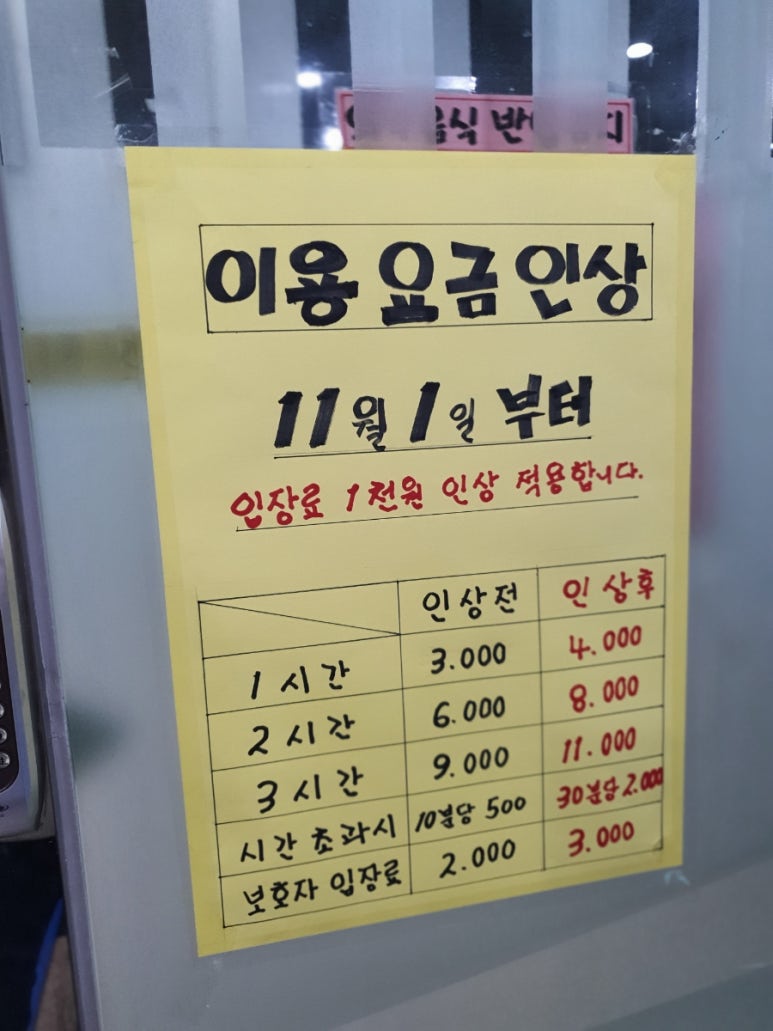 식 반
이용 요금 인상
11월 1일 부터
입장료 1천원 인상 적용합니다.
인상전 인상후
1시간 3.000 4.000
2시간 6.000 8.000
3시간 9.000 11.000
시간 초과시 10분당 500 30분당 2.000
보호자 입장료 2.000 3.000